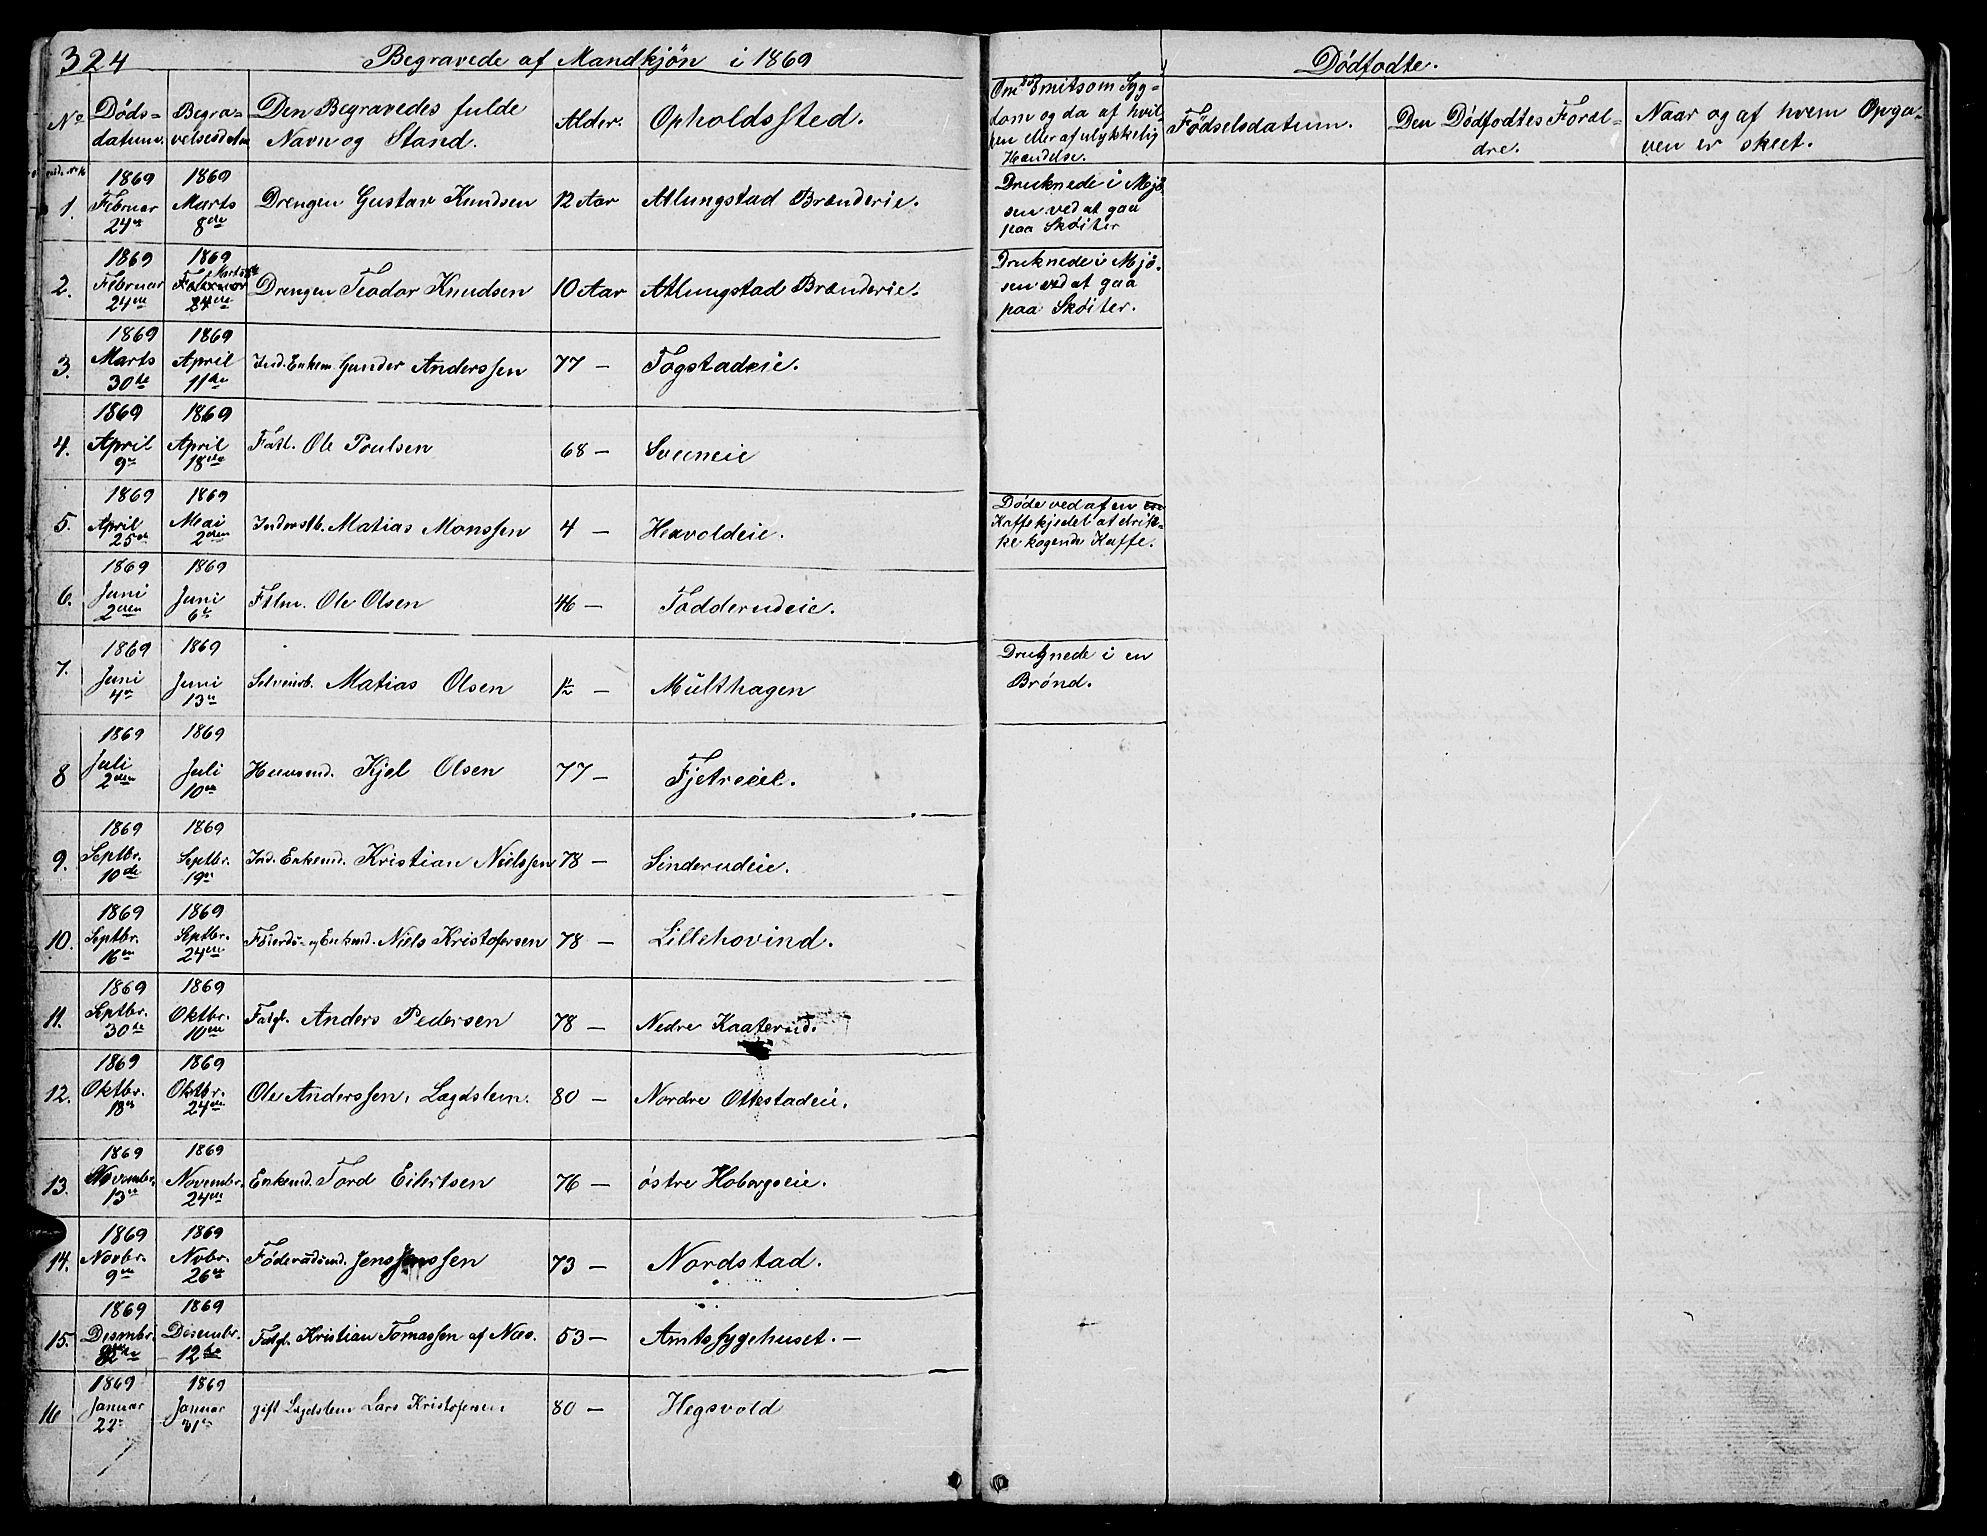 324 Begravede af Mandkjøn i 1869 Dødfødte.
No Døds-datum. Begra-velsesdatum Den Begravedes fulde Navn og Stand. Alder. Opholdssted. Om af smitsom Syg-dom og da af hvil-ken eller af ulykkelig Hændelse. Fødselsdatum. Den Dødfødtes Foræl-dre. Naar og af hvem Opga-ven er skeet.
1. 1869 Februar 24de 1869 Marts 8de Drengen Gustav Knudsen 12 Aar Atlungstad Brænderie. Druknede i Mjø-sen ved at gaa paa Skøiter
2. 1869 Februar 24de 1869 Februar 24de Marts Drengen Teodor Knudsen 10 Aar Atlungstad Brænderie. Druknede i Mjø-sen ved at gaa paa Skøiter.
3. 1869 Marts 30te 1869 April 11te Ind. Enkem. Gunder Anderssen 77 — Togstadeie.
4. 1869 April 9de 1869 April 18de Fatl. Ole Poulsen 68 — Sveeneie
5. 1869 April 25de 1869 Meai 2den Inderstb. Matias Monssen 4 — Hexvoldeie. Døde ved af en en Kaffekjedel at drik-ke kogende Kaffe.
6. 1869 Juni 2den 1869 Juni 6te Ftlm. Ole Olsen 46 — Todderudeie.
7. 1869 Juni 4de 1869 Juni 13de Selveierb. Matias Olsen 1½ — Multhagen Druknede i en Brønd.
8 1869 Juli 2den 1869 Juli 10de Huusmd. Kjel Olsen 77 — Fjetreeie.
9. 1869 Septbr. 10de 1869 Septbr. 19de Ind. Enkemd. Kristian Nielssen 78 — Sinderudeie.
10. 1869 Septbr. 16de 1869 Septbr. 24de Føderds- og Enkemd. Niels Kristofersen 78 — Lillehovind.
11. 1869 Septbr. 30te 1869 Oktbr. 10de Fatgl. Anders Pedersen 78 — Nedre Kaaterud.
12. 1869 Oktbr. 18de 1869 Oktbr. 24de Ole Anderssen, Lægdslem. 80 — Nordre Ottestadeie.
13. 1869 Novembr. 13de 1869 Novembr. 24de Enkemd. Tord Eilertsen 76 — østre Hobergseie.
14. 1869 Novbr. 9de 1869 Novbr. 26de Føderaadsmd. Jens Jenssen 73 — Nordstad.
15. 1869 Desmbr. 1869 Desembr. 12te Fatgl. Kristian Tomassen af Næs. 53 — Amtssygehuset. —
16 1869 Januar 22de 1869 Januar 31te gift Lægdslem Lars Kristofersen 80 — Hegsvold